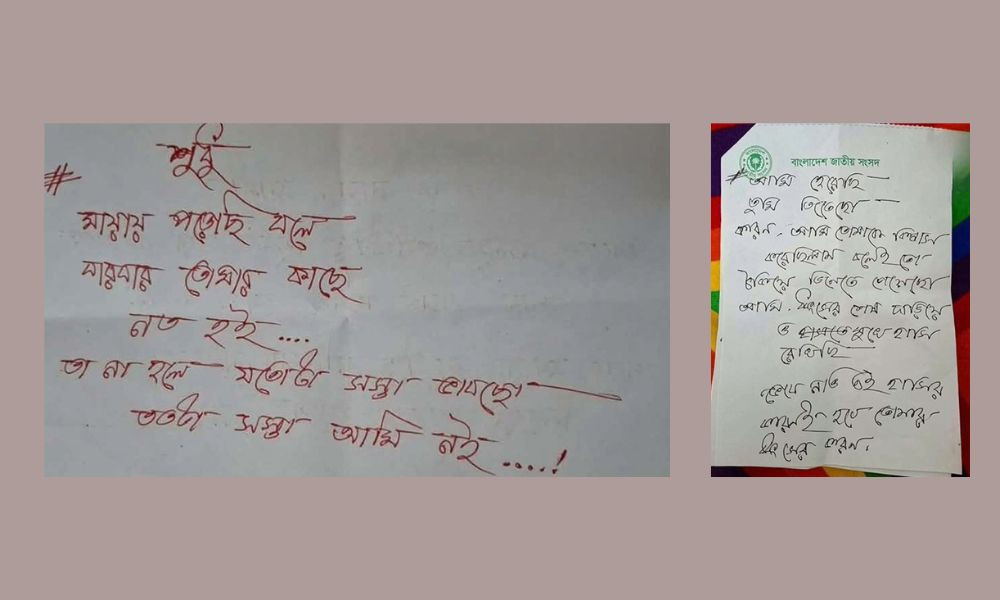 শুধু
#
মায়ায় পড়েছি বলে
বারবার তোমার কাছে
নত হই....
তা না হলে যতোটা সস্তা ভাবছো
ততটা সস্তা আমি নই.....!
বাংলাদেশ জাতীয় সংসদ
# আমি হেরেছি
তুমি জিতেছো
কারন. আমি তোমাকে বিশ্বাস
করেছিলাম বলেই তো
ঠকিয়ে জিতেতে পেরেছো
আমি. ধ্বংসের শেষ দাড়িয়ে
ও মুখে হাসি
রেখেছি
জেনে নাও এই হাসির
কারনই হবে তোমার
ধ্বংসের কারন.